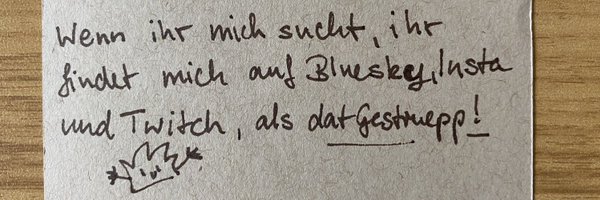 Wenn ihr mich sucht, ihr
findet mich auf Bluesky, Insta
und Twitch, als datGestruepp!